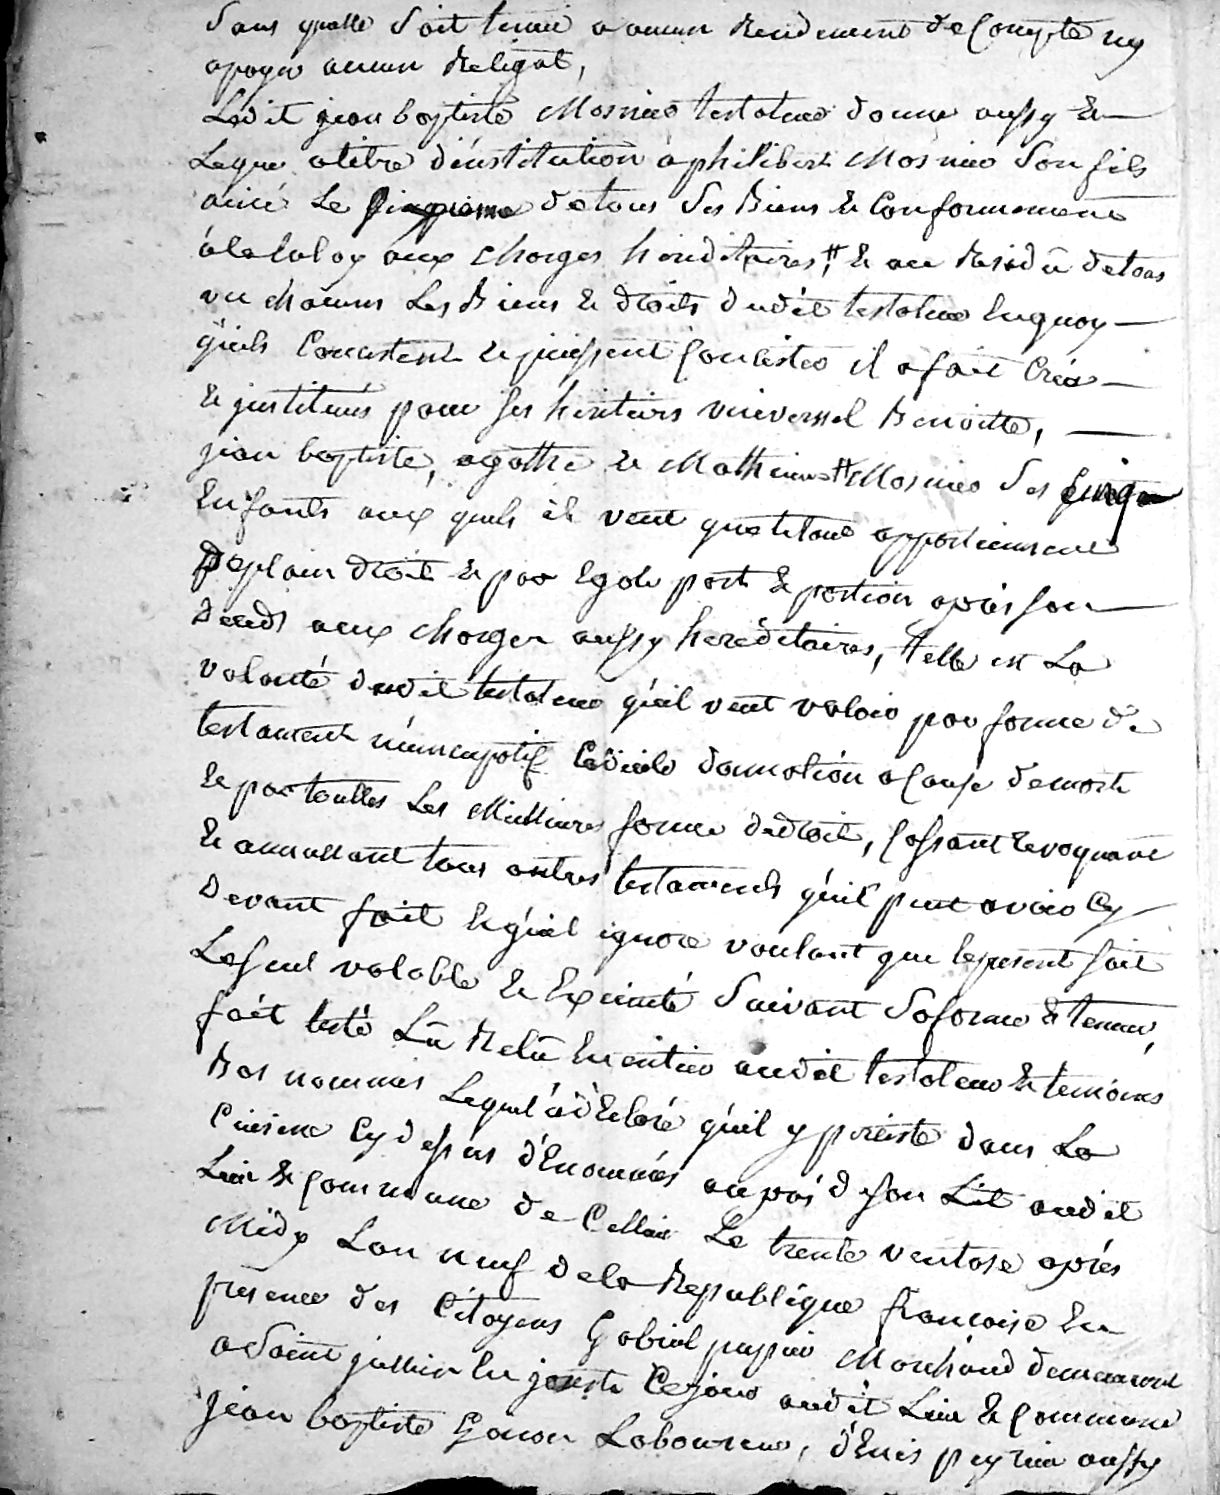 Sans quelle soit tenue a aucun Rendement de Compte ny
apoyer aucun Reliqat,
Ledit jean baptiste Mosnier testateur donne aussy &
Legue atitre d'institution à philibert Mosnier Son fils
ainé Le de tous Ses Biens & Conformement
à la loy aux charges heréditaires, # & au Residû de tous
un chacuns Les Biens & droits dudit testateur Enquoy
qu'ils Concistent & puissent Concister il a fait Créé
& institués pour ses heritiers universsel Benoitte,
jean baptiste, agathe & Mathieu # Mosnier Ses Cinq
Enfants aux quels il veut que le tout appartiennent
de plain droit & par Egale part & portion après son
Decéds aux charges aussy heréditaires, telle est La
volonté dudit testateur qu'il veut valoir par forme de
testament nunccupatif Codicile donnation a Cause de mort
& par touttes Les Meillieures forme de droit, Cassant Revoquant
& annullant tous autres testaments qu'il peut avoir Cy
devant fait & qu'il ignore voulant que le present soit
Le seul valable & Exécuté Suivant Sa forme & teneur,
fait testé Lû Relû En entier audit testateur & temoins
Bas nommés Lequel à dEclaré qu'il y perciste dans La
Cuisine Cy dessus dEnommés auprés de son Lit audit
Lieu & Commune de Cellieu Le trente ventose après
Midy L'an neuf de la Republique francoise En
présence des Citoyens Gabriel pupier Marchand demeurant
a Saint jullien En jarest Ce jour audit Lieu & Commune
jean baptiste Gonon Laboureur, dEnis peyrieu aussy